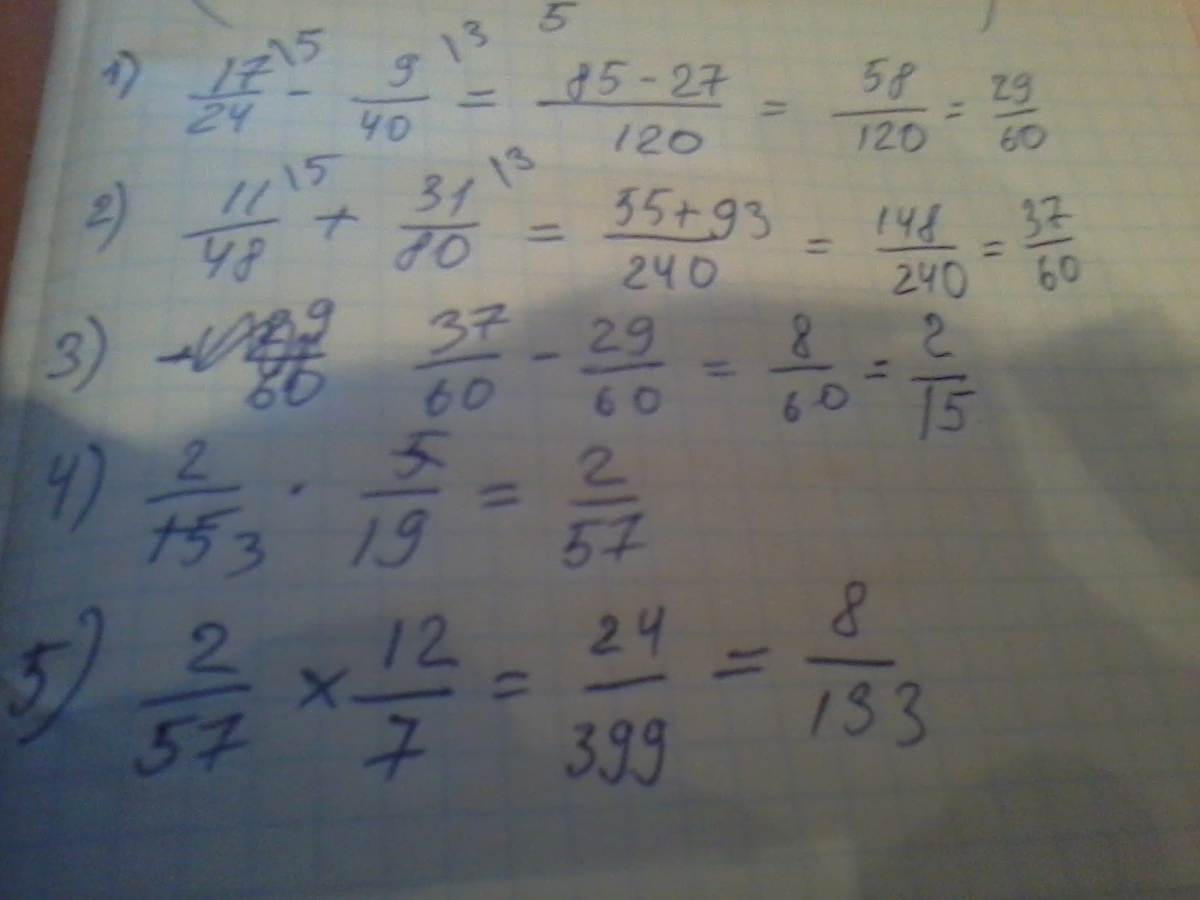 5
1) 17/24 \5 - 9/40 \3 = 85-27/120 = 58/120 = 29/60
2) 11/48 \5 + 31/80 \3 = 55+93/240 = 148/240 = 37/60
3) 37/60 - 29/60 = 8/60 = 2/15
4) 2/15 3 · 5/19 = 2/57
5) 2/57 × 12/7 = 24/399 = 8/133